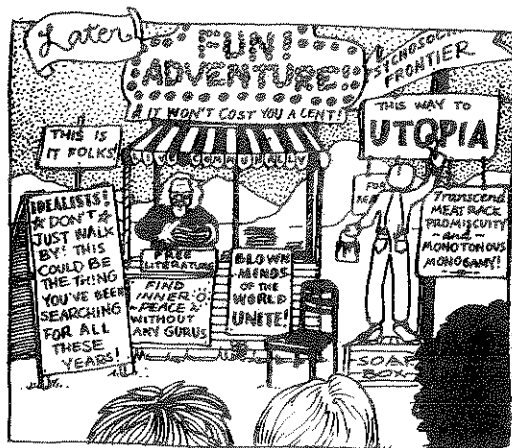 Later
FUN!
ADVENTURE!
IT WON'T COST YOU A CENT!
PSYCHOSOCIAL
FRONTIER
THIS IS
IT FOLKS!
LIVE COMMUNALLY
THIS WAY TO
UTOPIA
IDEALISTS!
DON'T
JUST WALK
BY! THIS
COULD BE
THE THING
YOU'VE BEEN
SEARCHING
FOR ALL
THESE
YEARS!
FREE
LITERATURE
FIND
INNER
PEACE
WITHOUT
ANY GURUS
BLOWN
MINDS
OF THE
WORLD
UNITE!
FOR
Transcend
MEATRACK
PROMISCUITY
-and-
MONOTONOUS
MONOGAMY!
SOAP
BOX